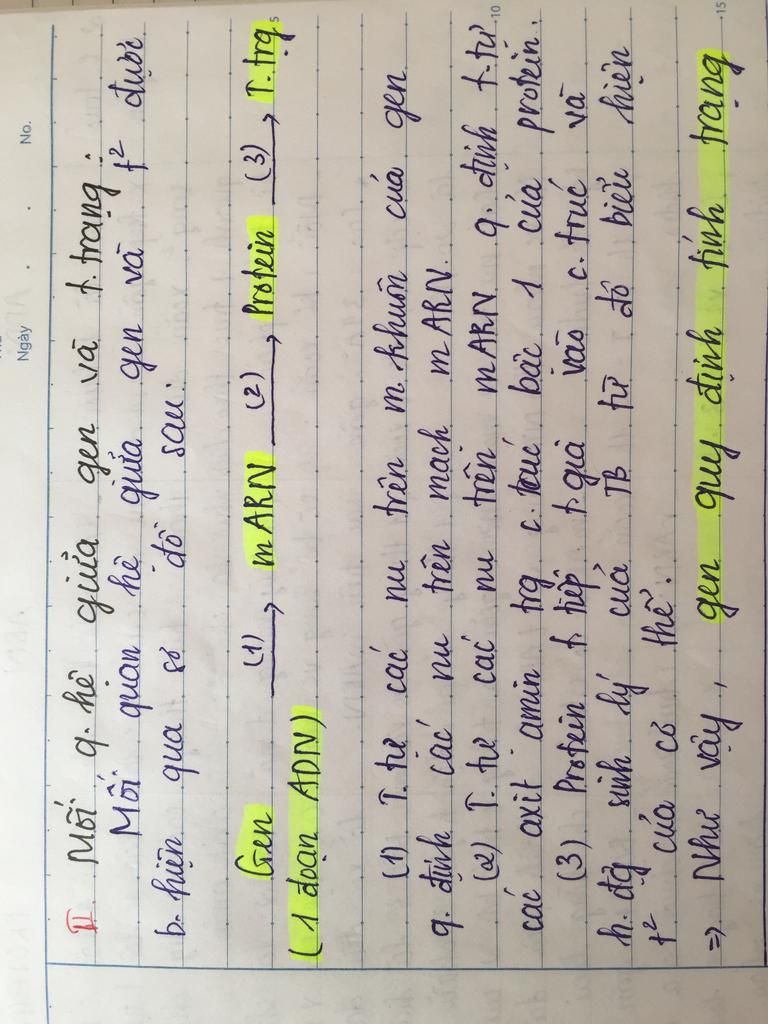 No.
Ngày
5
10
15
II Mối q. hệ giữa gen và t. trạng:
Mối quan hệ giữa gen và t² được
b. hiện qua sơ đồ sau.
Gen (1) mARN (2) Protein (3) T. trg
(1 đoạn ADN)
(1) T. tự các nu trên m. khuôn của gen
q. định các nu trên mạch mARN.
(2) T. tự các nu trên mARN q. định t. tự
các axit amin trg c. trúc bậc 1 của protein.
(3) Protein t. tiếp t. gia vào c. trúc và
h. đg sinh lý của TB từ đó biểu hiện
t² của cơ thể.
⇒ Như vậy, gen quy định tính trạng